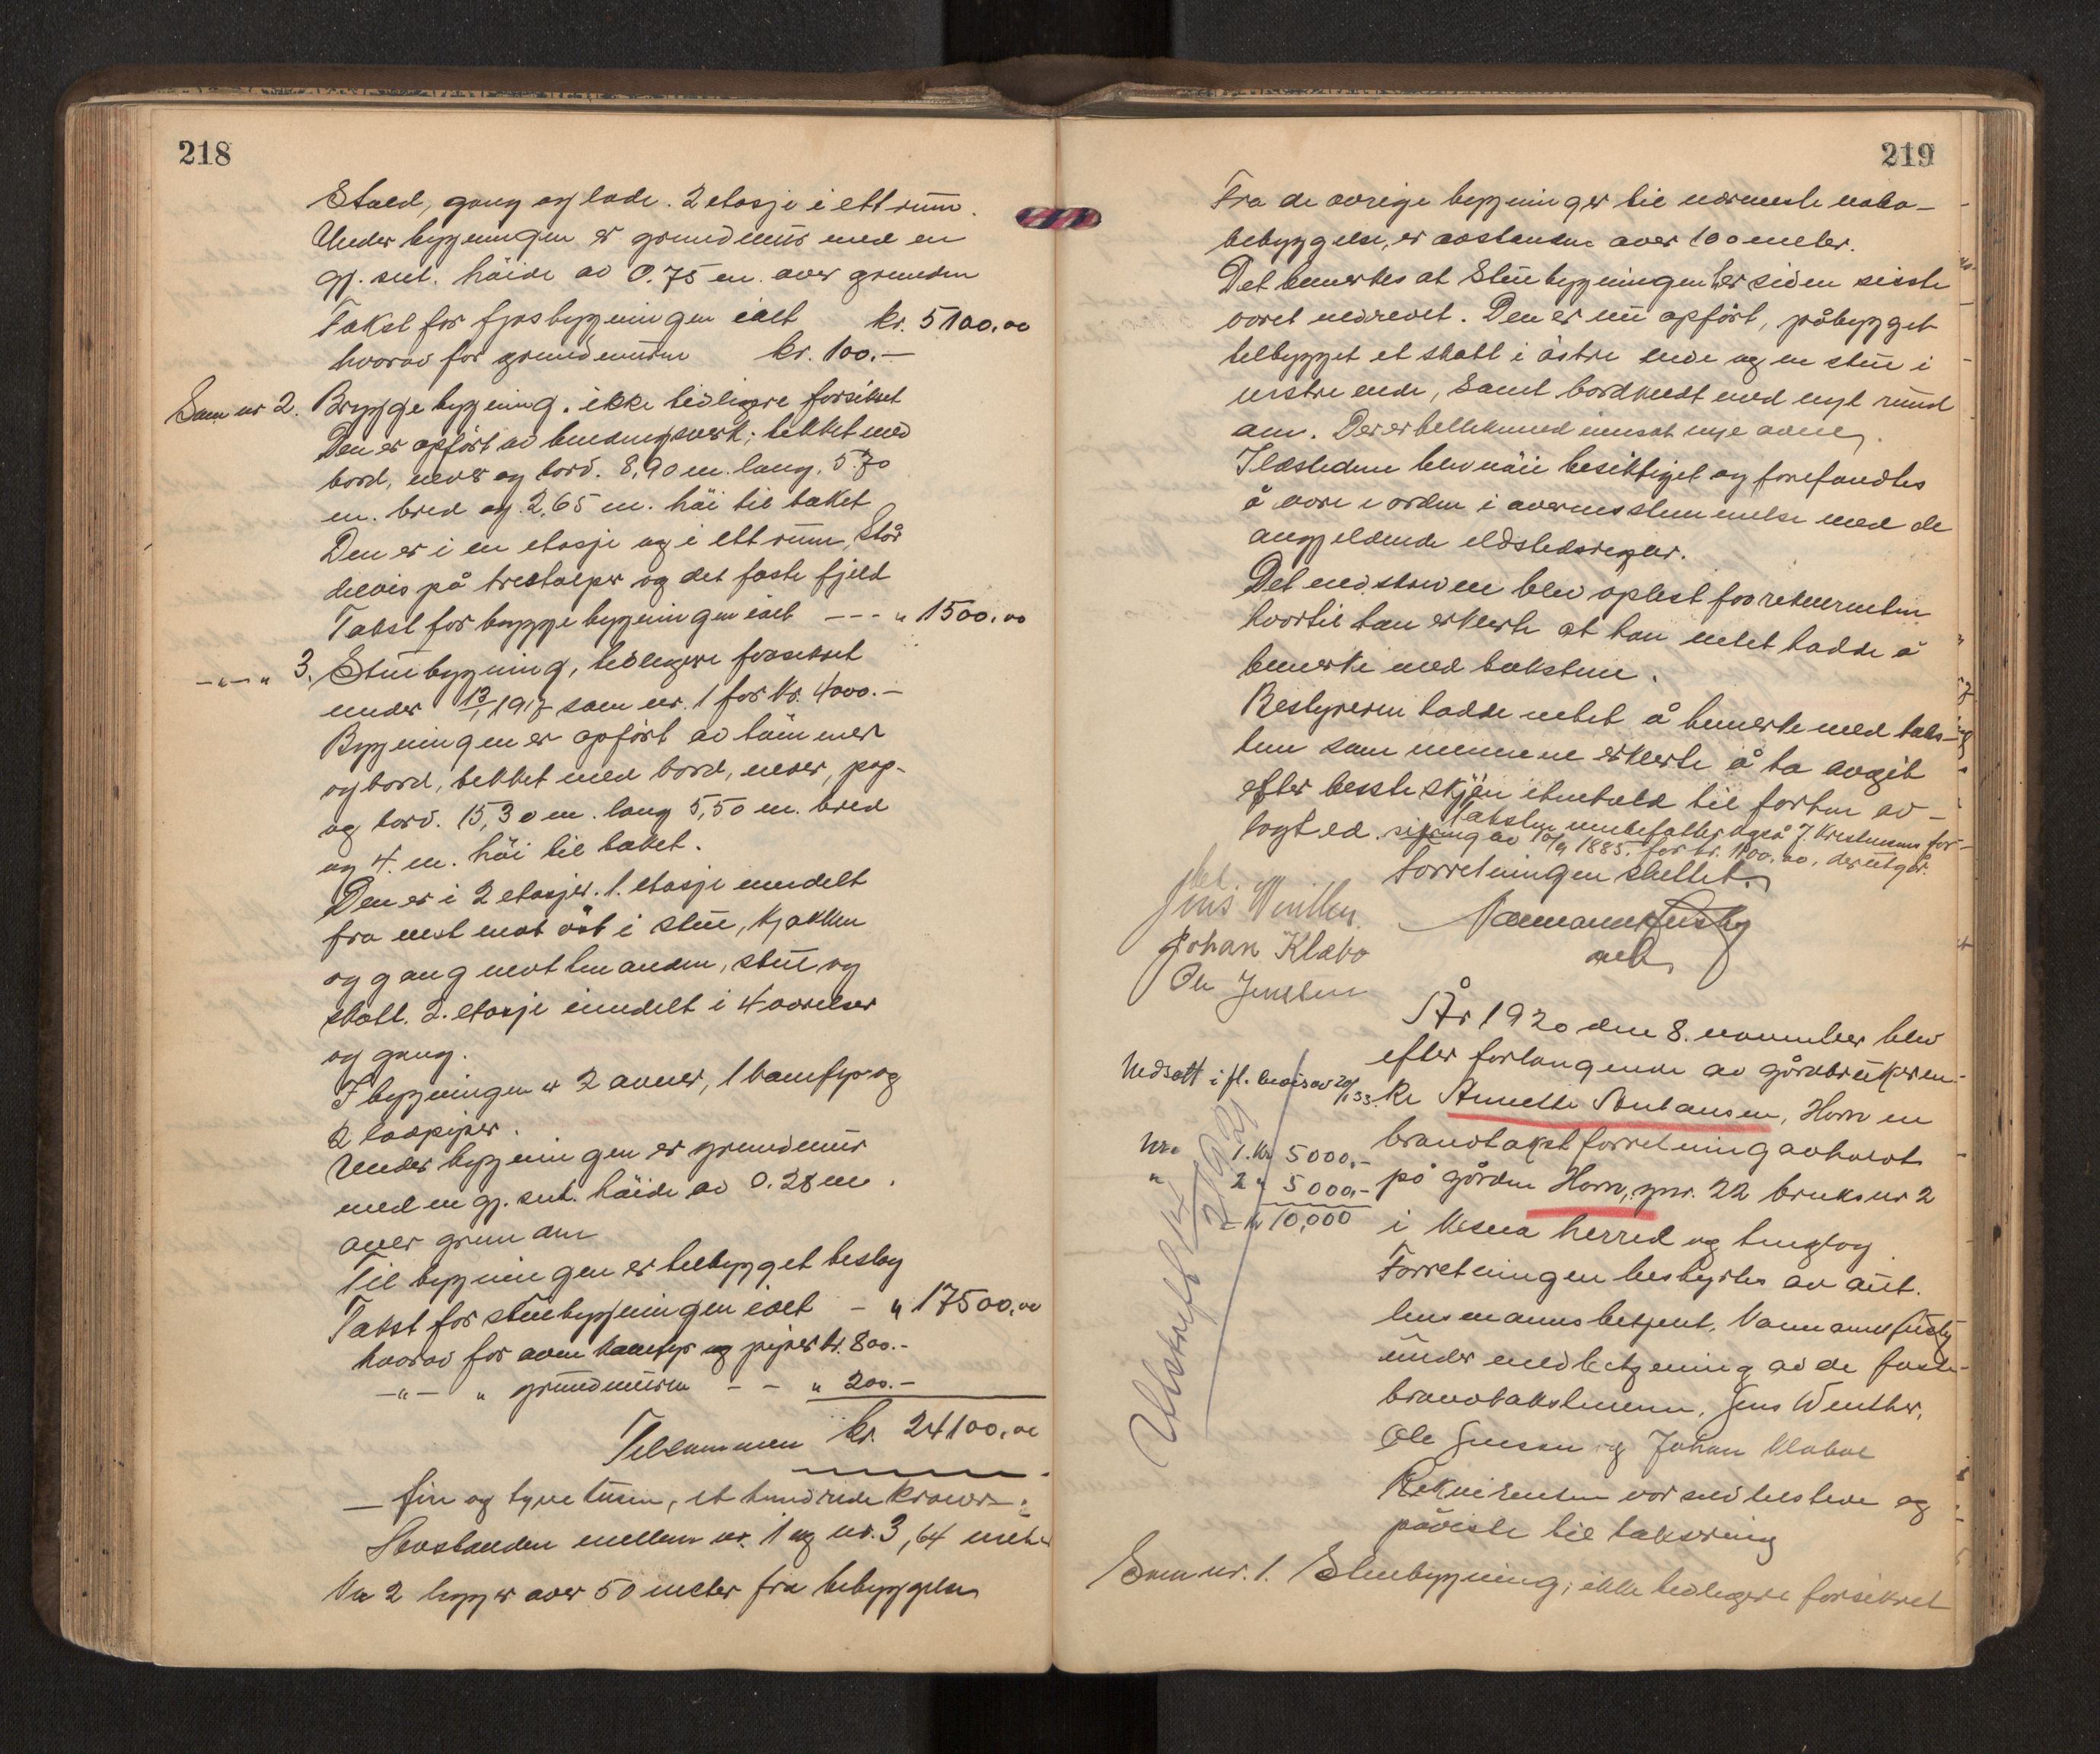 218
Stald, gang og lade. 2 etasje i ett rum.
Under bygningen er grundmur med en
gj. snt. höide av 0.75 m. over grunden
Takst for fjøsbygningen ialt kr. 5100.00
hvorav for grundmuren kr. 100.-
Som nr 2. Bryggebygning, ikke tidligere forsikret
Den er opført av bindingsverk, tekket med
bord, never og torv. 8,90 m. lang. 5.70
m. bred og 2,65 m. höi til taket
Den er i en etasje og i ett rum, står
delvis på trestolper og det faste fjeld
Takst for bryggebygningen ialt --- " 1500.00
-"- " 3. Stuebygning, tidligere forsikret
under 13/1 1917 som nr. 1 for kr. 4000.-
Bygningen er opført av tömmer
og bord, tekket med bord, never, pap-
og torv. 15,30 m. lang 5,50 m. bred
og 4. m. höi til taket.
Den er i 2 etasjer. 1. etasje inndelt
fra vest mot öst i stue, kjøkken
og gang mot hinanden, stue og
skott. 2. etasje inndelt i 4 værelser
og gang.
I bygningen er 2 ovner, 1 komfyr og
2 teglpiper.
Under bygningen er grundmur
med en gj. snt. höide av 0.28 m.
over grunden
Til bygningen er tilbygget beslag
Takst for stuebygningen ialt - " 17500.00
hvorav for ovner komfyr og piper kr. 800.-
-"- " grundmuren - - " 200.-
Tilsammen kr. 24100.00
- fire og tyve tusen, et hundrede kroner -
Avstanden mellem nr. 1 og nr. 3, 64 meter
Nr 2 ligger over 50 meter fra bebyggelsen
219
Fra de øvrige bygninger til nærmeste nabo-
bebyggelse, er avstanden over 100 meter.
Det bemerkes at Stuebygningen her siden sisste
vært nedrevet. Den er nu opført, påbygget
tilbygget et skott i östre ende og en stue i
vestre ende, samt bordkledt med nyt rund
om. Der er innsat nye ovner.
Ildstedene blev nöie besiktiget og forefandtes
å være i orden i overensstemmelse med de
angjeldende ildstedsregler.
Det nedskrevne blev oplest for rekvirenten
hvortil han erklerte at han intet hadde å
bemerke med taksten.
Bestyreren hadde intet å bemerke med taks-
ten som mennene erklerte å ha avgit
efter besste skjön i henhold til forhen av-
lagt ed. Taksten innbefatter også J. Kristensens for-
sikring av 10/9 1885. for kr. 1100.00, der utgår.
Forretningen sluttet.
Jens Winther
Johan Klæbo
Ole Jenssen
Normann Husby
År 1920 den 8. november blev
efter forlangende av gårdbrukeren-
ke Annette Antonsen, Horn en
brandtakstforretning avholdt
på gården Horn, gnr. 22 bruksnr 2
i Vesna herred og tinglag
Forretningen bestyrtes av aut.
lensmannsbetjent. Normann Husby
under medbetjening av de faste
brandtakstmenn. Jens Winther,
Ole Jenssen og Johan Klæboe
Rekvirenten var selv tilstede og
påviste til taksering
Nedsatt i fl. bevis av 20/1 33.
Nr. 1. Kr 5000,-
" 2 " 5000,-
= Kr 10,000
Utskrift 15/12 1921
Som nr. 1. Stuebygning, ikke tidligere forsikret